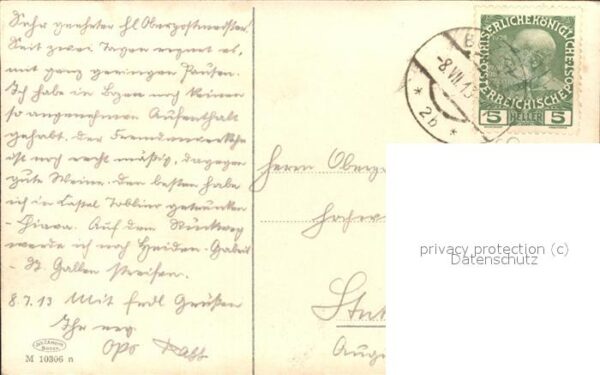 Sehr geehrter Hl Oberpostmeister!
Seit zwei Tagen regnet es,
mit ganz geringen Pausen.
Ich habe in Bozen noch keinen
so angenehmen Aufenthalt
gehabt. Der Fremdenverkehr
ist noch recht mäßig, dagegen
gute Weine. Den besten habe
ich in Castel Toblino getrunken
Auf dem Rückweg
werde ich noch Heiden
- St. Gallen streifen.
8.7.13 Mit frdl Grüßen
Ihr erg.
M 10306 n
KAISERLICHE KÖNIGLICHE
ÖSTERREICHISCHE POST
5 HELLER 5
-8.VII.13
* 2b *
Herrn Ober
privacy protection (c)
Datenschutz